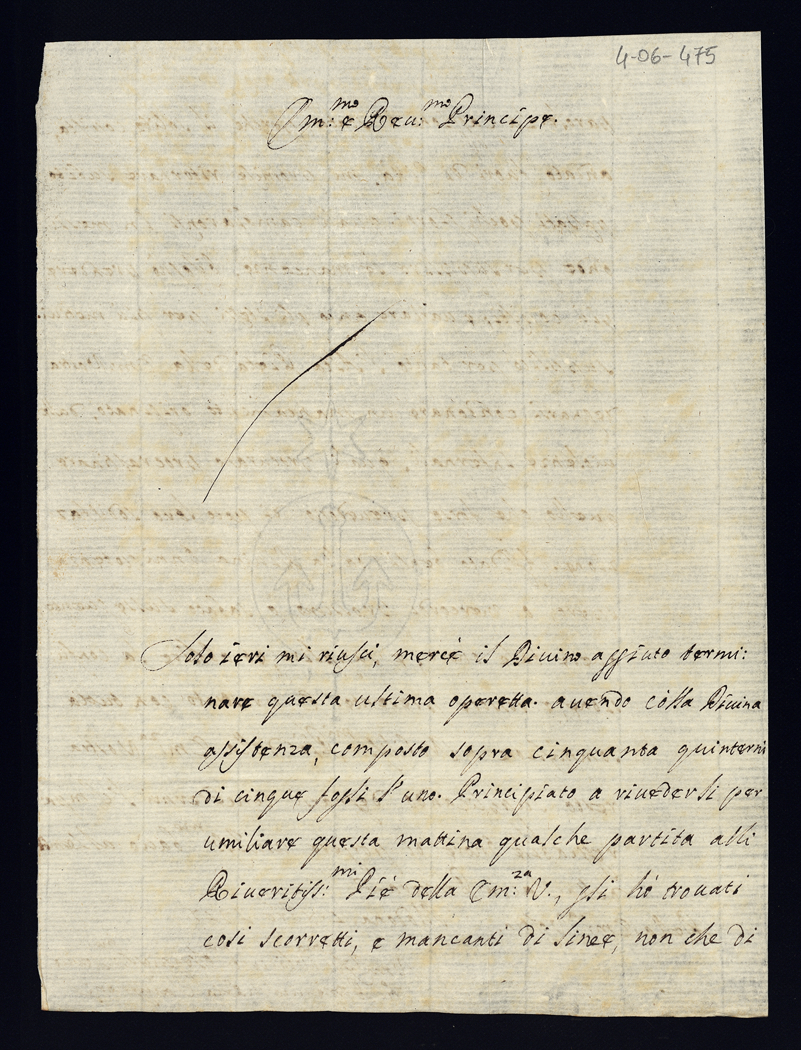 4-06-475
Em:mo e Reu:mo Principe.
Solo ieri mi riuscì, mercè il Divino aggiuto termi:
nare questa ultima operetta. auendo colla Divina
assistenza, composto sopra cinquanta quinterni
di cinque fogli l'uno. Principiato a riuedersi per
umiliare questa mattina qualche partita alli
Riueritiss:mi Piè della Em:za V., gli hò trouati
cosi scorretti, e mancanti di linee, non che di